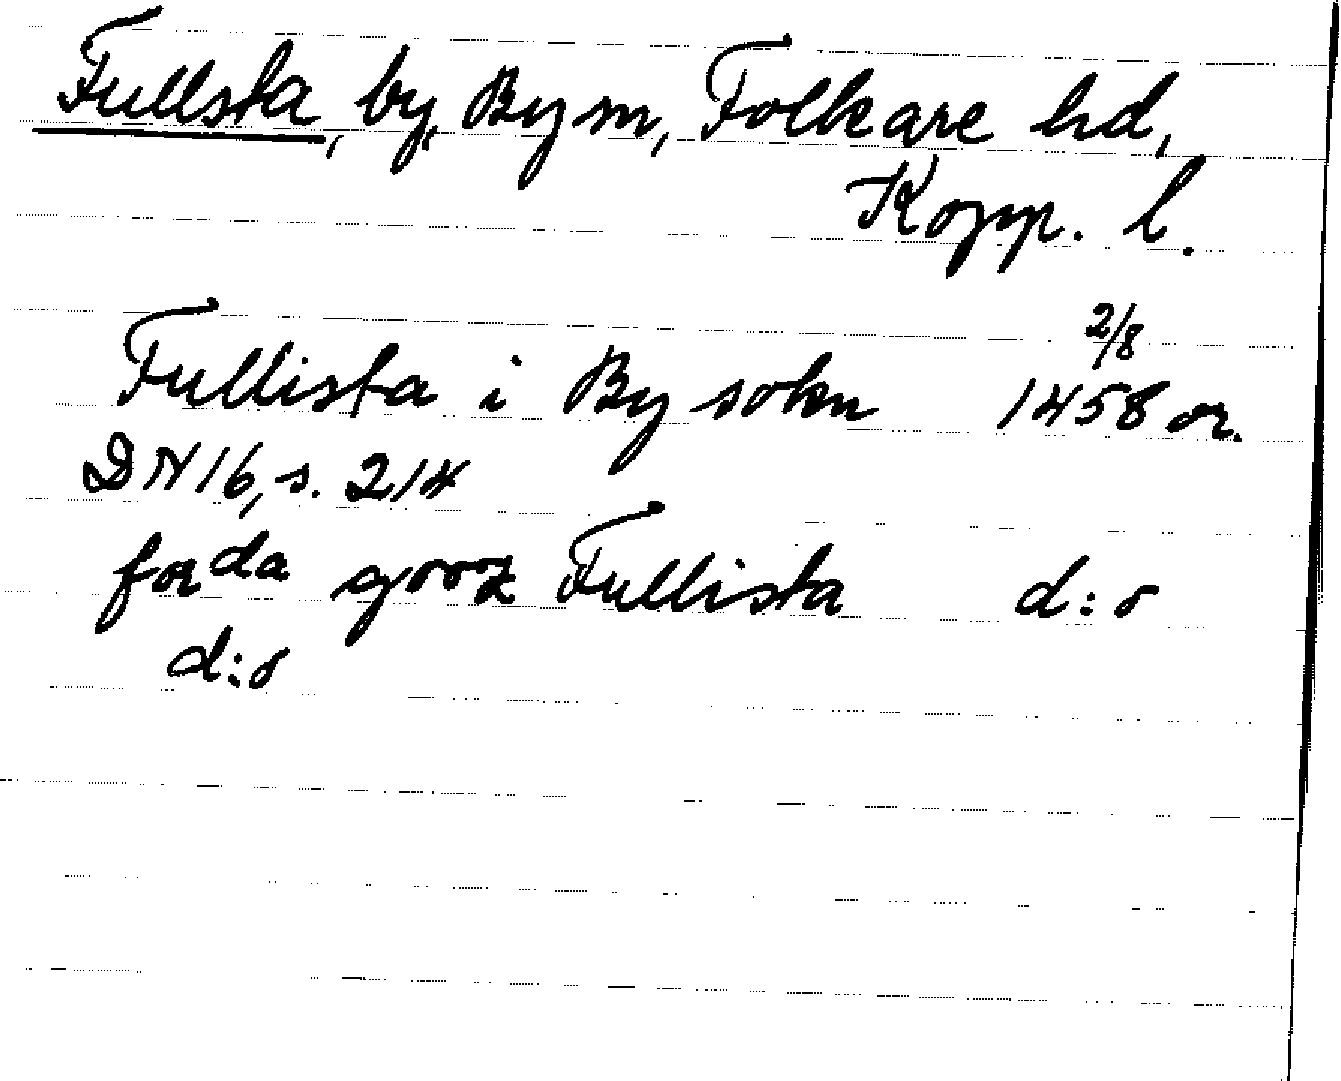 Fullsta, by, By sn, Folkare hd,
Kopp. l.
Fullista i By sokn 2/8 1458 or.
DN 16, s. 214
forda gooz Fullista d:o
d:o